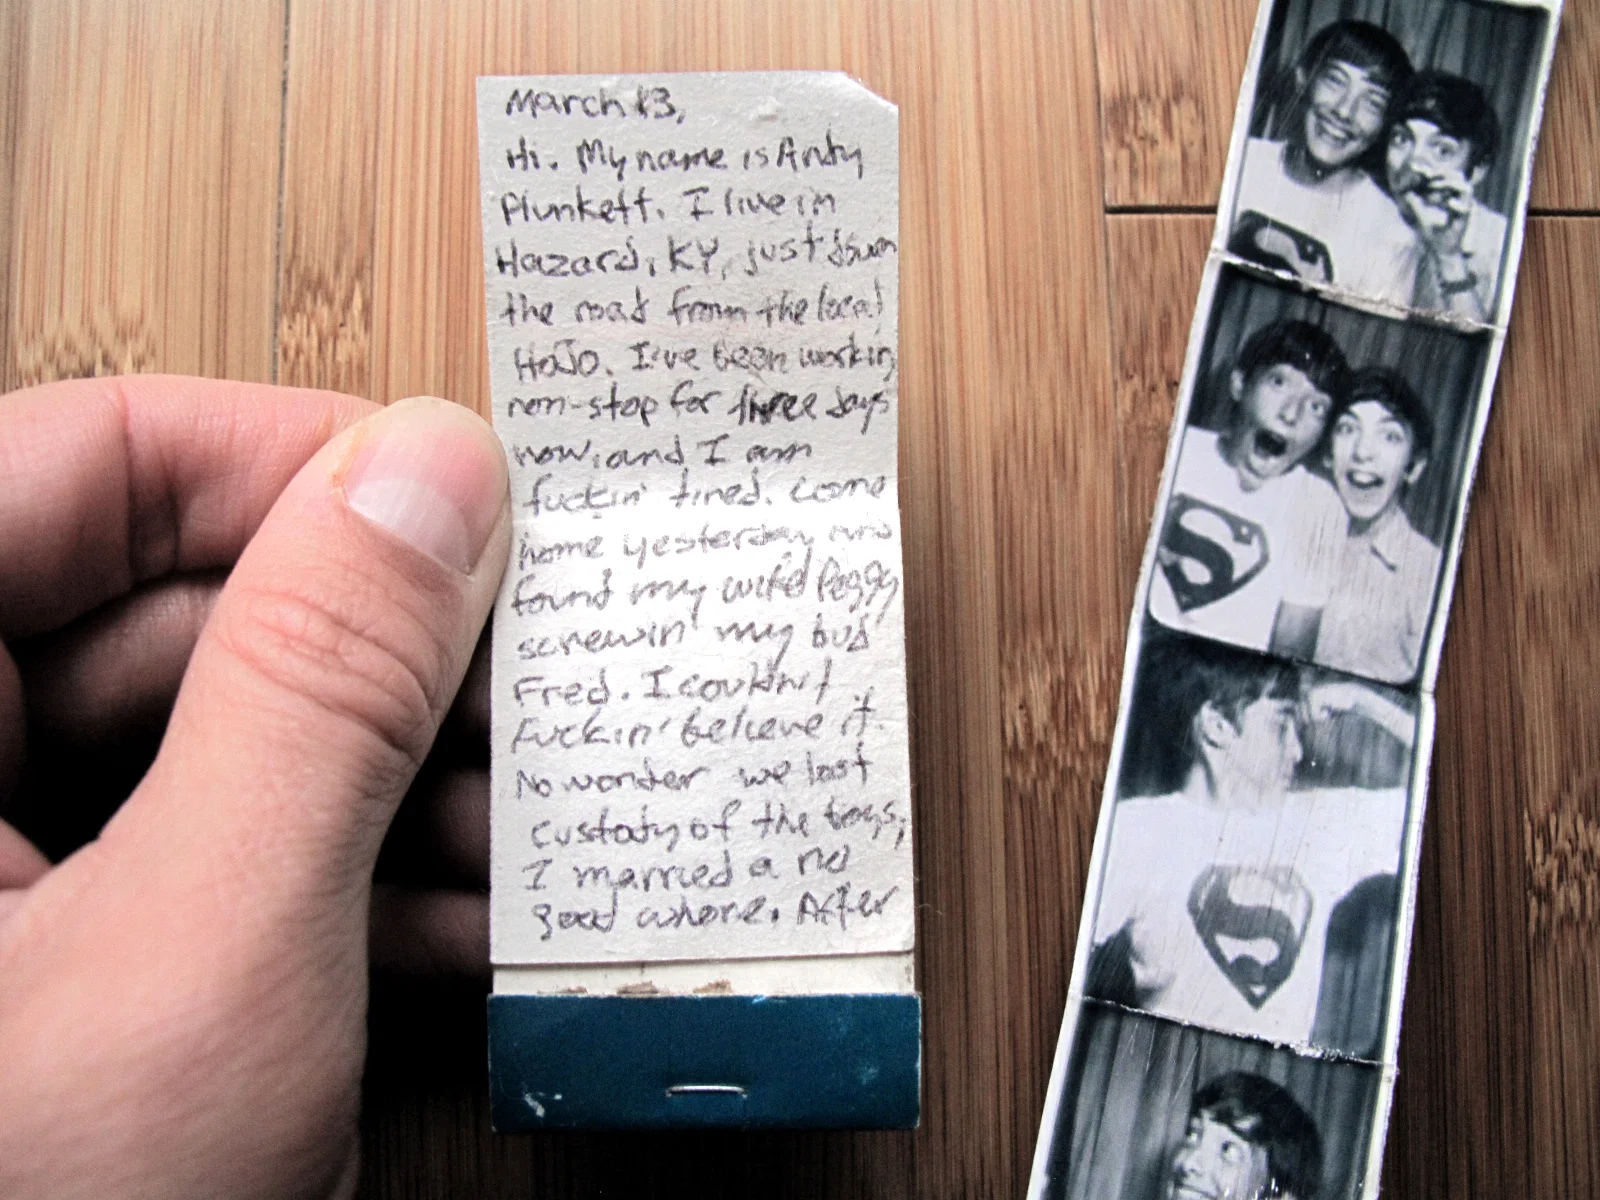 March 13,
Hi. My name is Andy
Plunkett. I live in
Hazard, KY, just down
the road from the local
HoJo. I've been working
non-stop for three days
now, and I am
fuckin' tired. Come
home yesterday and
found my wife Peggy
screwin' my bud
Fred. I couldn't
fuckin' believe it.
No wonder we lost
custody of the boys,
I married a no
good whore. After
S
S